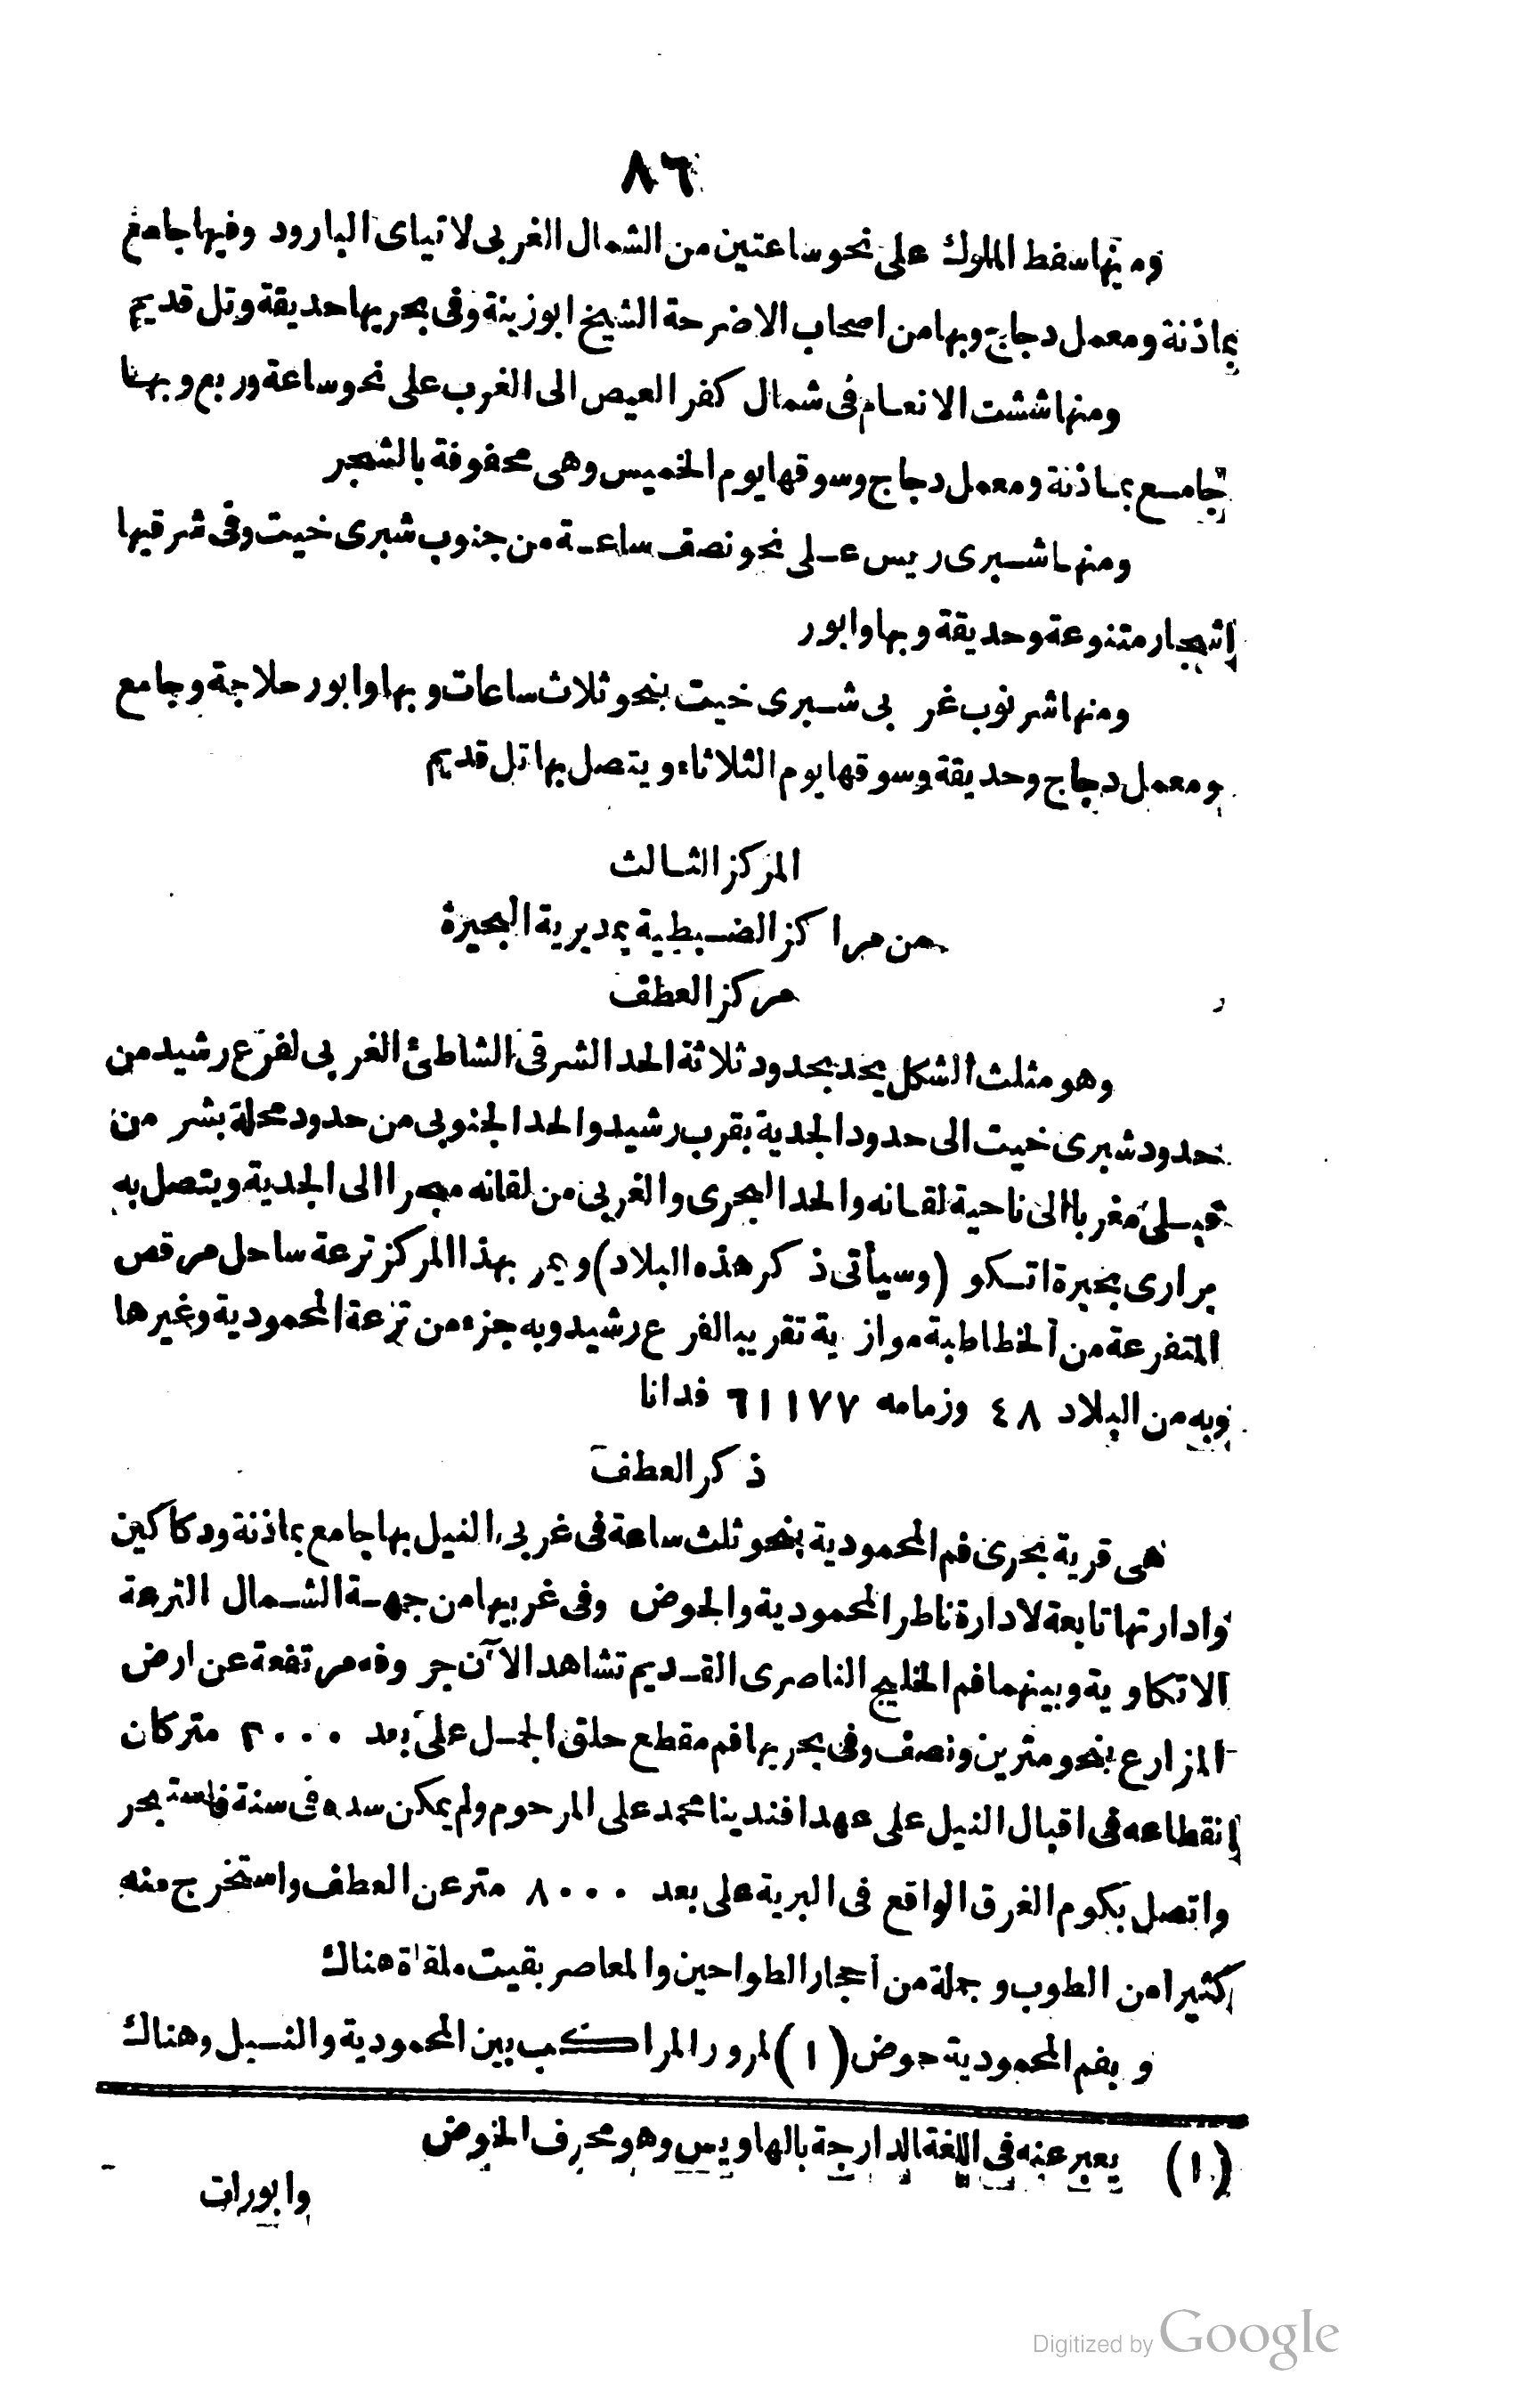 ٨٦
ومنها سفط الملوك على نحو ساعتين من الشمال الغربى لاتياى البارود وفيها جامع
بماذنة ومعمل دجاج وبها من اصحاب الاضرحة الشيخ ابو زينة وفى بحريها حديقة وتل قديم
ومنها ششت الانعام فى شمال كفر العيص الى الغرب على نحو ساعة وربع وبها
جامع بماذنة ومعمل دجاج وسوقها يوم الخميس وهى محفوفة بالشجر
ومنها شبرى ريس على نحو نصف ساعة من جنوب شبرى خيت وفى شرقيها
اشجار متنوعة وحديقة وبها وابور
ومنها شرنوب غربى شبرى خيت بنحو ثلاث ساعات وبها وابور حلاجة وجامع
ومعمل دجاج وحديقة وسوقها يوم الثلاثاء ويتصل بها تل قديم
المركز الثالث
من مراكز الضبطية بمديرية البحيرة
مركز العطف
وهو مثلث الشكل يحد بحدود ثلاثة الحد الشرقى الشاطئ الغربى لفرع رشيد من
حدود شبرى خيت الى حدود الجدية بقرب رشيد والحد الجنوبى من حدود محلة بشر من
قبلى مغربا الى ناحية لقانه والحد البحرى والغربى من لقانه مبحرا الى الجدية ويتصل به
برارى بحيرة اتكو (وسيأتى ذكر هذه البلاد) ويمر بهذا المركز ترعة ساحل مرقص
المتفرعة من الخطاطبة موازية تقريبا لفرع رشيد وبه جزء من ترعة المحمودية وغيرها
وبه من البلاد ٤٨ وزمامه ٦١١٧٧ فدانا
ذكر العطف
هى قرية بحرى فم المحمودية بنحو ثلث ساعة فى غربى النيل بها جامع بماذنة ودكاكين
وادارتها تابعة لادارة ناظر المحمودية والحوض وفى غربيها من جهة الشمال الترعة
الاتكاوية وبينهما فم الخليج الناصرى القديم تشاهد الآن جروفه مرتفعة عن ارض
المزارع بنحو مترين ونصف وفى بحريها فم مقطع حلق الجمل على بعد ٢٠٠٠ متر كان
انقطاعه فى اقبال النيل على عهد افندينا محمد على المرحوم ولم يمكن سده فى سنة فاستبحر
واتصل بكوم الغرق الواقع فى البرية على بعد ٨٠٠٠ متر عن العطف واستخرج منه
كثيرا من الطوب وجملة من أحجار الطواحين والمعاصر بقيت ملقاة هناك
وبفم المحمودية حوض (١) لمرور المراكب بين المحمودية والنيل وهناك
(١) يعبر عنه فى اللغة الدارجة بالهاويس وهو محرف الحوض
وابورات
Digitized by Google